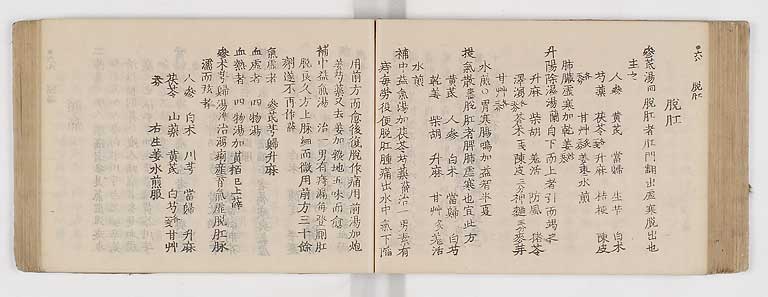 脱肛
脱肛
參芪湯 脱肛者肛門翻出虛寒脱出也
主之
人參 黄芪 當歸 生芐 白朮
芍藥 茯苓 升麻 桔梗 陳皮
甘艸 姜棗水煎
肺臟虛寒加乾姜
升陽除濕湯 自下而上者引而竭之
升麻 柴胡 羌活 防風 猪苓
澤瀉 蒼朮 陳皮 神麯 麥芽
甘艸
水煎 胃寒腸鳴加益智半夏
提氣散 脱肛者脾肺虛寒也宜此方
黄芪 人參 白朮 當歸 白芍
乾姜 柴胡 升麻 甘艸 羌活
水煎
補中益氣湯加茯苓芍藥 治一男素有
痔每勞役便脱肛腫痛出水中氣下陷
用前方而愈後復脱作痛用前湯加炮
姜芍藥又去姜加熟地五味而愈
補中益氣湯 治一男有痔漏每登厠肛
脱良久方上脉細而微用前方三十餘
劑遂不再作
氣虛者 參芪芎歸升麻
血虛者 四物湯
血熱者 四物湯加黄栢
參朮芎歸湯 治瀉痢産育氣虛脱肛脉
濡而弦者
人參 白朮 川芎 當歸 升麻
茯苓 山藥 黄芪 白芍 甘艸
右生姜水煎服